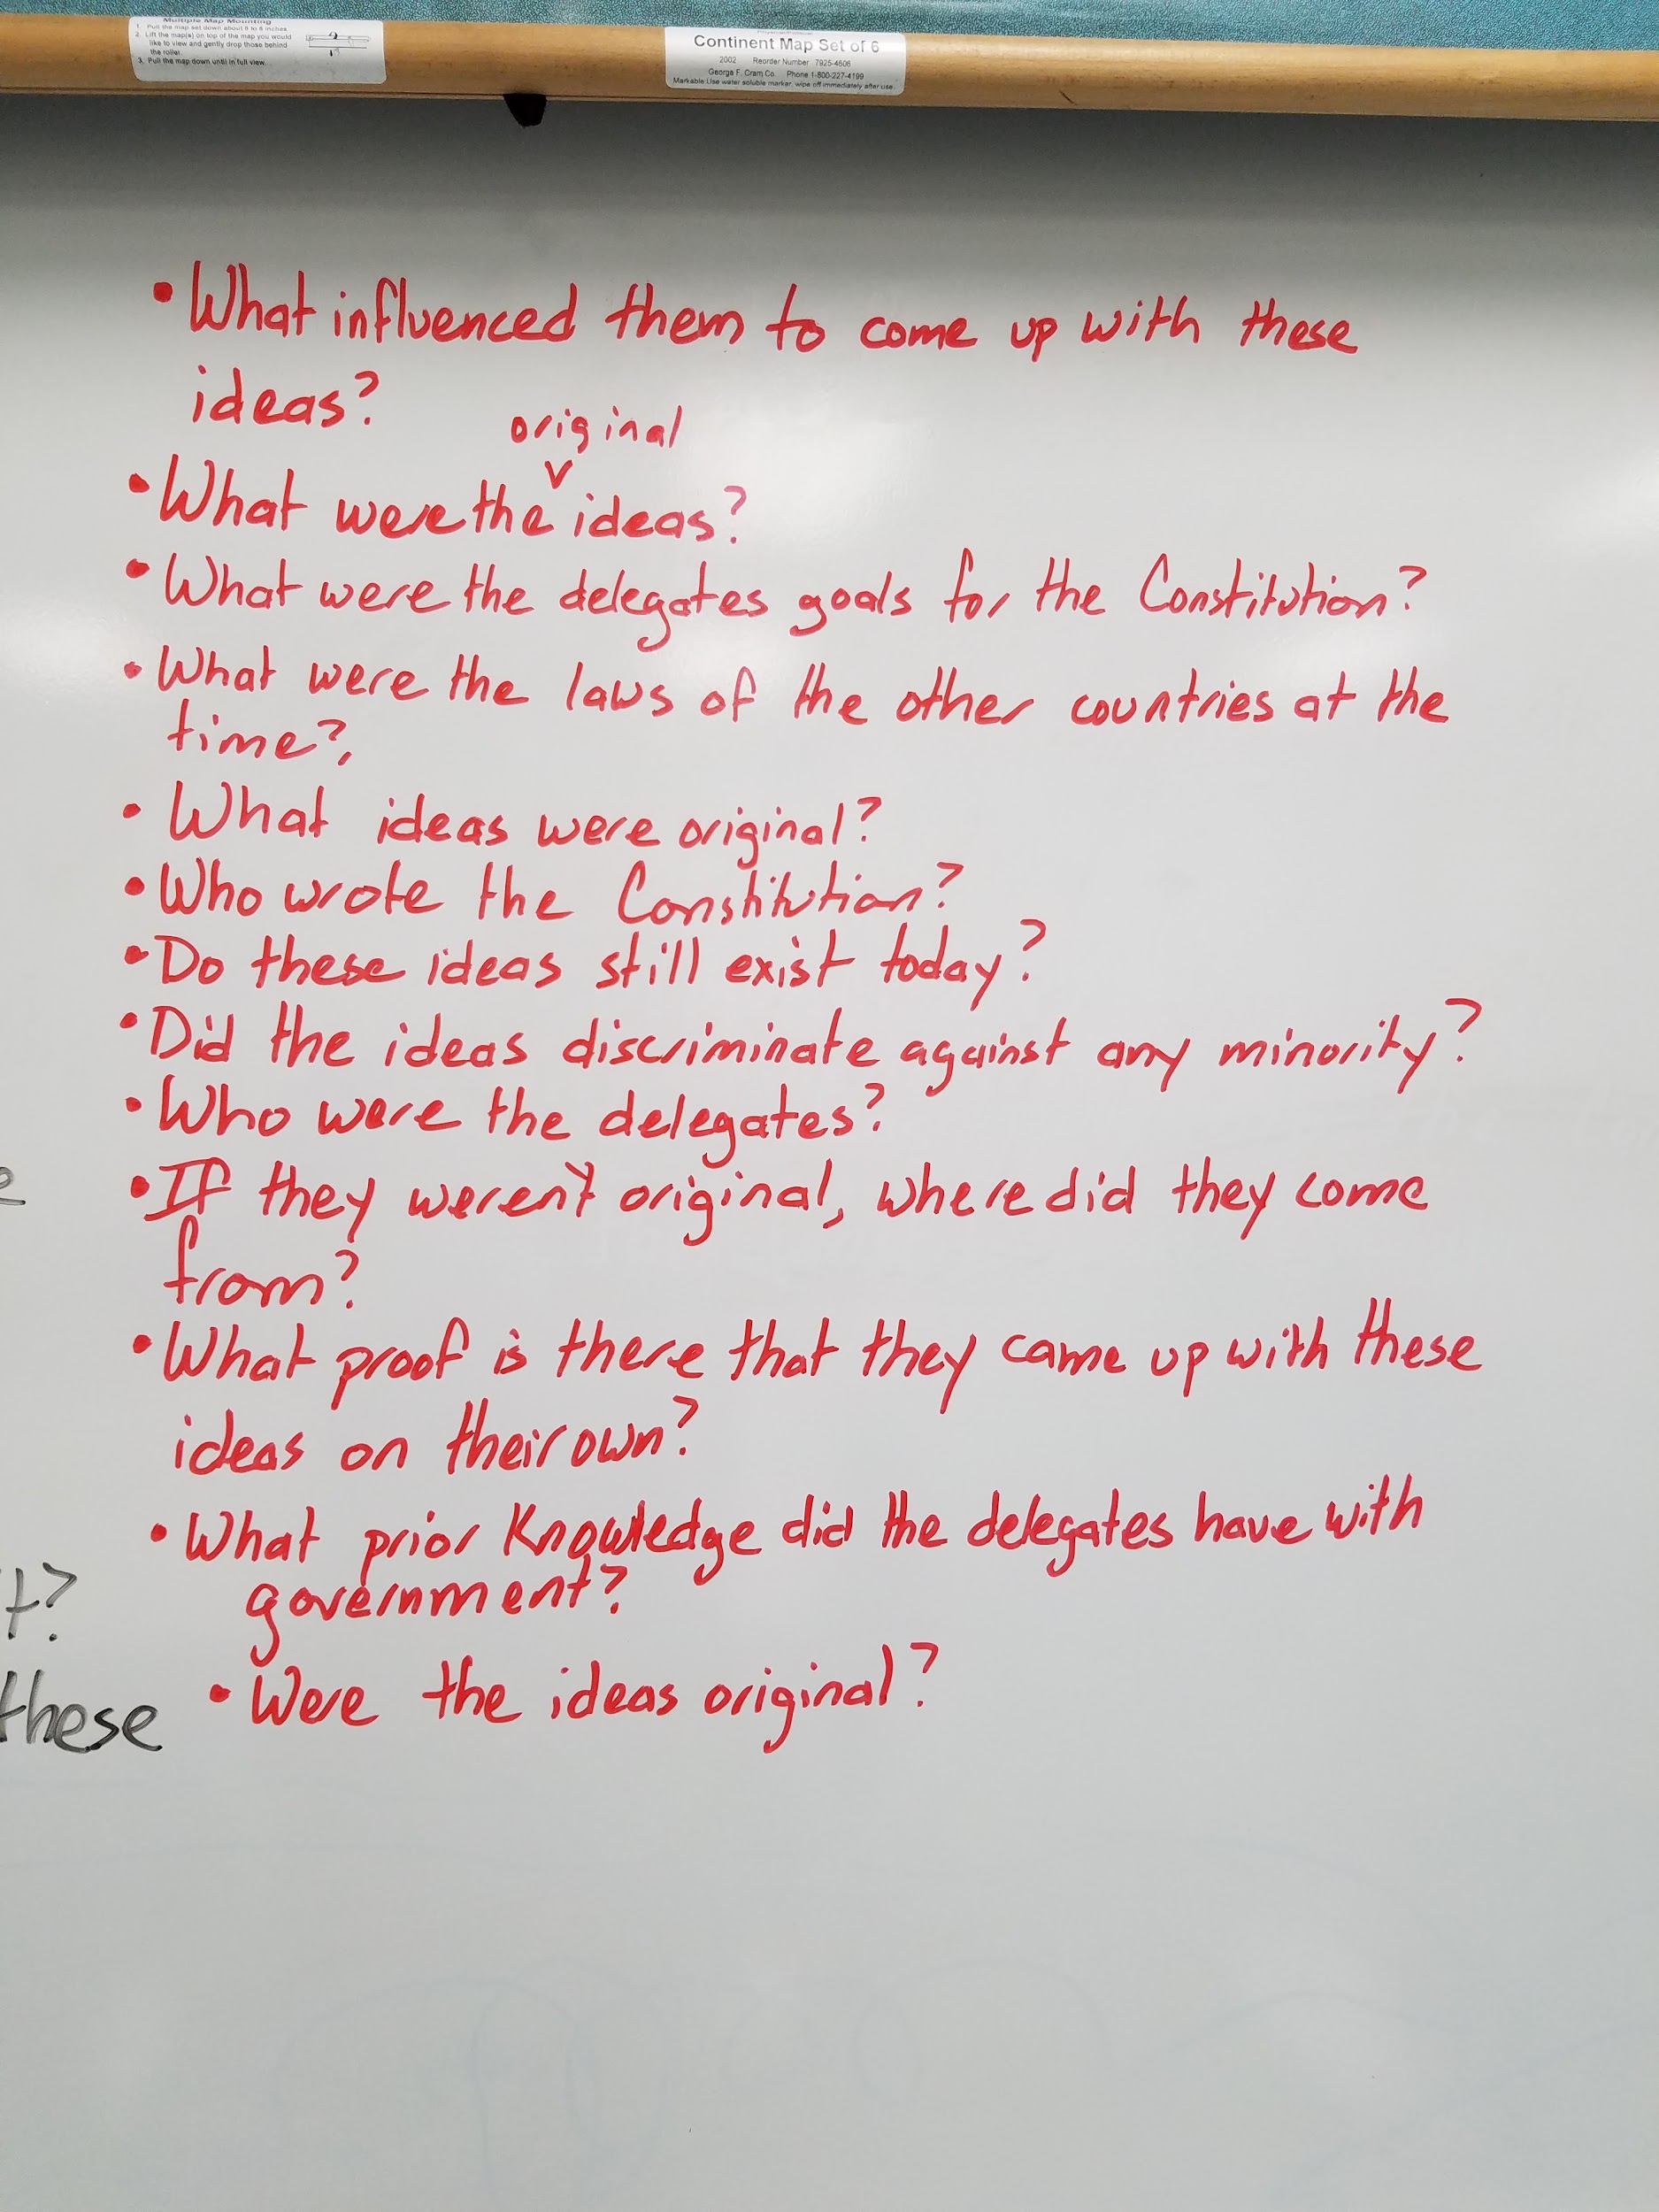 Multiple Map Mounting
1. Pull the map set down about 6 to 8 inches
2. Lift the map(s) on top of the map you would
like to view and gently drop those behind
the roller.
3. Pull the map down until in full view.
Continent Map Set of 6
2002 Reorder Number 7925-4606
George F. Cram Co. Phone 1-800-227-4199
Markable Use water soluble marker, wipe off immediately after use.
• What influenced them to come up with these
ideas?
original
• What were the ˅ ideas?
• What were the delegates goals for the Constitution?
• What were the laws of the other countries at the
time?,
• What ideas were original?
• Who wrote the Constitution?
• Do these ideas still exist today?
• Did the ideas discriminate against any minority?
• Who were the delegates?
• If they weren't original, where did they come
from?
• What proof is there that they came up with these
ideas on their own?
• What prior Knowledge did the delegates have with
government?
• Were the ideas original?
e
t?
these